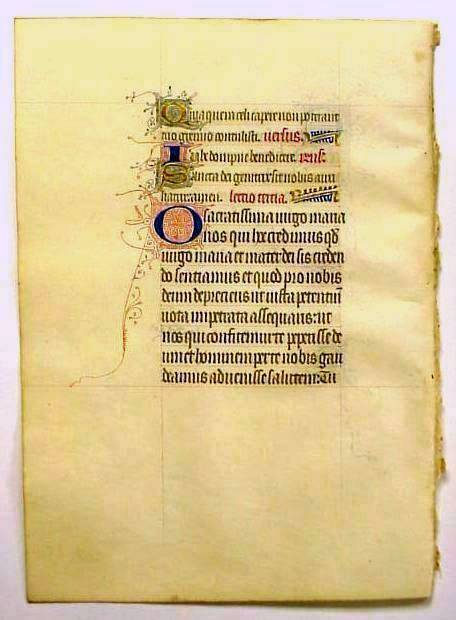 Quia quem celi capere non poterant
tuo gremio contulisti. versus.
Iube dompne benedicere.
Sancta dei genitrix sit nobis auxi
liatrix amen. lectio tercia.
O sacratissima virgo maria
nos qui hec credimus qd
virgo maria et mater dei sis creden
do sentiamus et quod pro nobis
deum depreceris ut iusta petentiu
vota impetrata assequatis: ut
nos qui confitemur te peperisse de
um et hominem per te nobis gau
deamus advenisse salutem: Tu